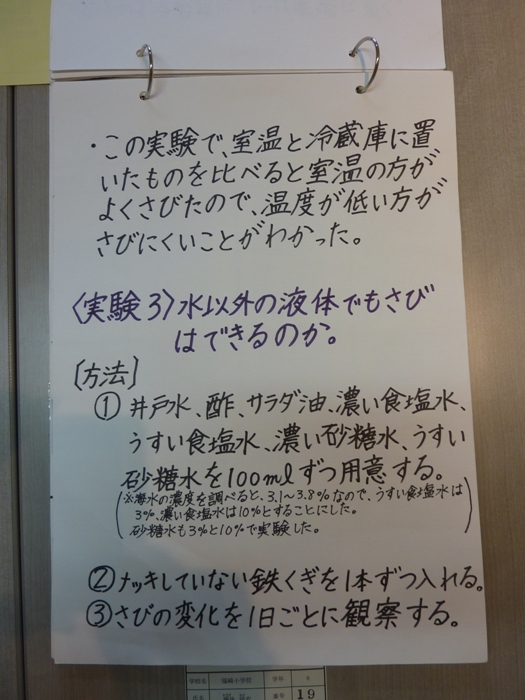 ・この実験で、室温と冷蔵庫に置
いたものを比べると室温の方が
よくさびたので、温度が低い方が
さびにくいことがわかった。
〈実験3〉水以外の液体でもさび
はできるのか。
〔方法〕
① 井戸水、酢、サラダ油、濃い食塩水、
うすい食塩水、濃い砂糖水、うすい
砂糖水を100mlずつ用意する。
(※海水の濃度を調べると、3.1〜3.8%なので、うすい食塩水は
3%、濃い食塩水は10%とすることにした。
砂糖水も3%と10%で実験した。)
②メッキしていない鉄くぎを1本ずつ入れる。
③さびの変化を1日ごとに観察する。
学校名 小学校 学年
氏名 番号 19